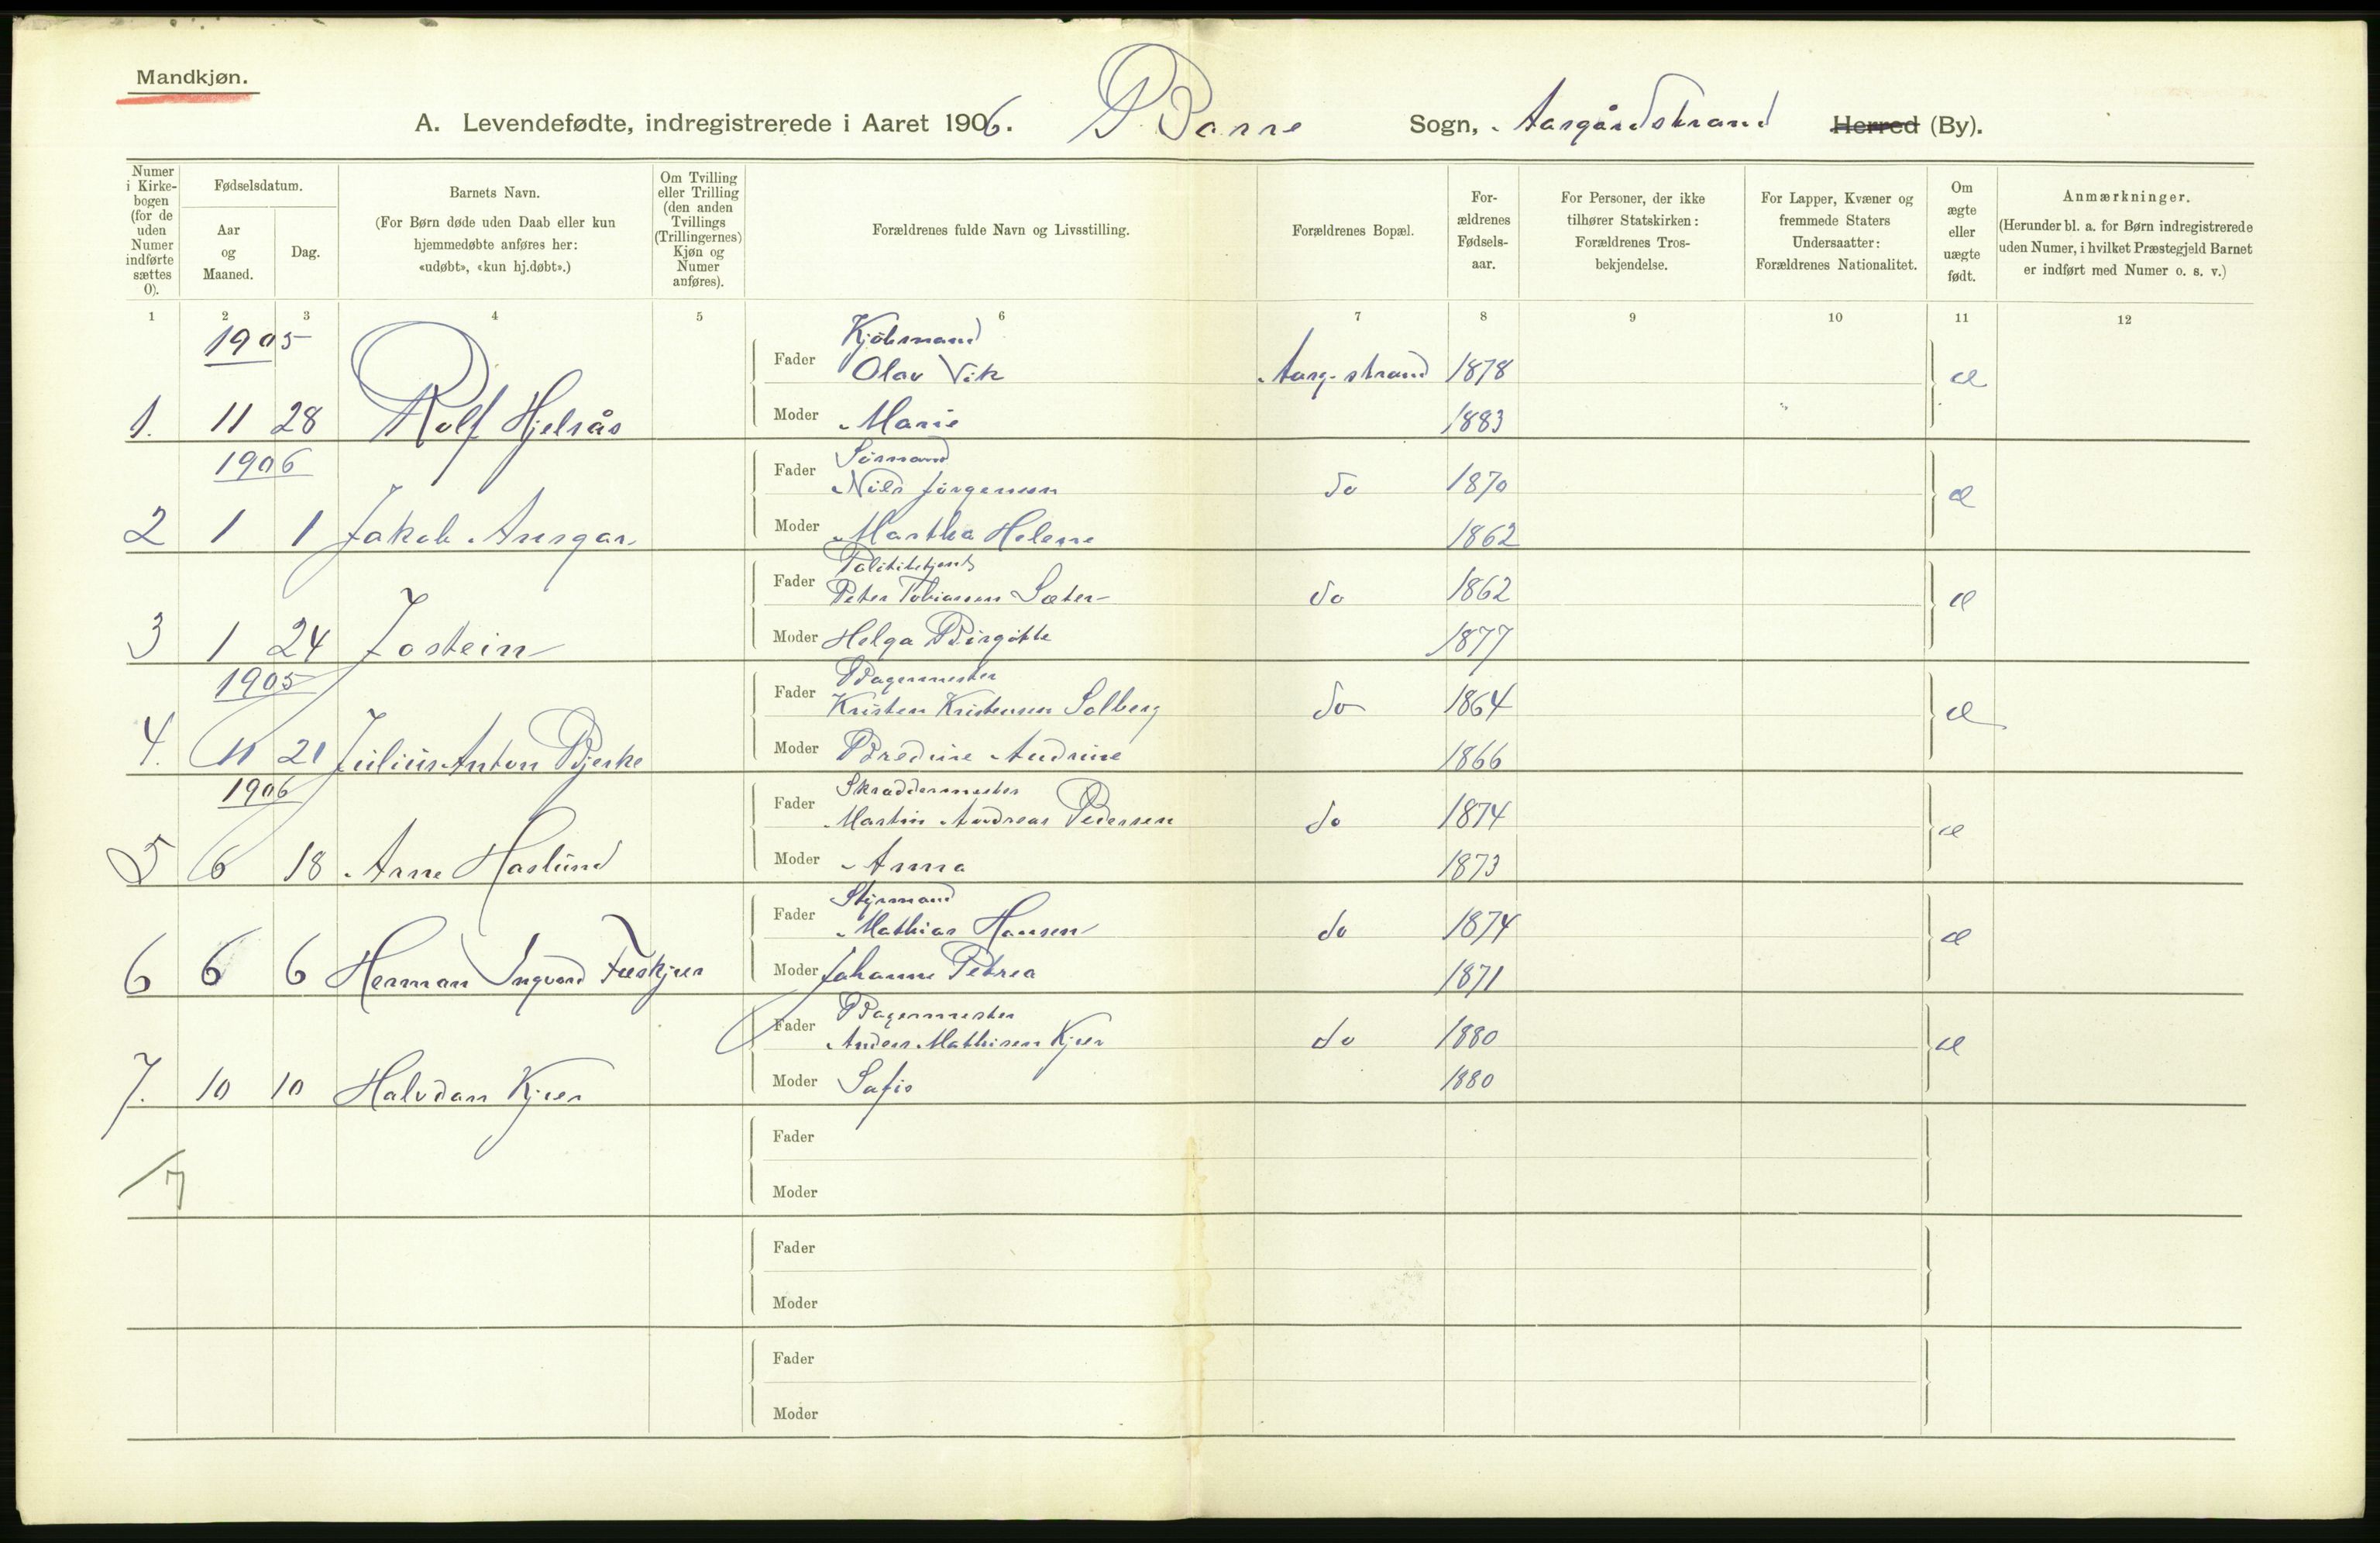 Mandkjøn.
A. Levendefødte, indregistrerede i Aaret 1906. Borre Sogn, Aasgårdstrand Herred (By).
Numer i Kirkebogen (for de uden Numer indførte sættes 0).
Fødselsdatum.
Aar og Maaned.
Dag.
Barnets Navn.
(For Børn døde uden Daab eller kun hjemmedøbte anføres her: «udøbt», «kun hj.døbt».)
Om Tvilling eller Trilling (den anden Tvillings (Trillingernes) Kjøn og Numer anføres).
Forældrenes fulde Navn og Livsstilling.
Forældrenes Bopæl.
Forældrenes Fødselsaar.
For Personer, der ikke tilhører Statskirken: Forældrenes Trosbekjendelse.
For Lapper, Kvæner og fremmede Staters Undersaatter: Forældrenes Nationalitet.
Om ægte eller uægte født.
Anmærkninger.
(Herunder bl. a. for Børn indregistrerede uden Numer, i hvilket Præstegjeld Barnet er indført med Numer o. s. v.)
1 2 3 4 5 6 7 8 9 10 11 12
1905
Kjøbmand
Fader Olav Vik Aasg.strand 1878 æ
1. 11 28 Rolf Hjelsås Moder Marie 1883
1906
Sømand
Fader Nils Jørgensen do 1870 æ
2 1 1 Jakob Ansgar Moder Martha Helene 1862
Politibetjent
Fader Peter Tobiassen Sæter do 1862 æ
3 1 24 Jostein Moder Helga Birgitte 1877
1905
Bagermester
Fader Kristen Kristensen Solberg do 1864 æ
4. 11 21 Julius Anton Bjerke Moder Bredine Andrine 1866
1906
Skræddermester
Fader Martin Andreas Pedersen do 1874 æ
5 6 18 Arne Haslund Moder Anna 1873
Styrmand
Fader Mathias Hansen do 1874 æ
6 6 6 Herman Ingvard Moder Johanne Petrea 1871
Bagermester
Fader Anders Mathisen Kjær do 1880 æ
7. 10 10 Halvdan Kjær Moder Sofie 1880
Fader
7
Moder
Fader
Moder
Fader
Moder